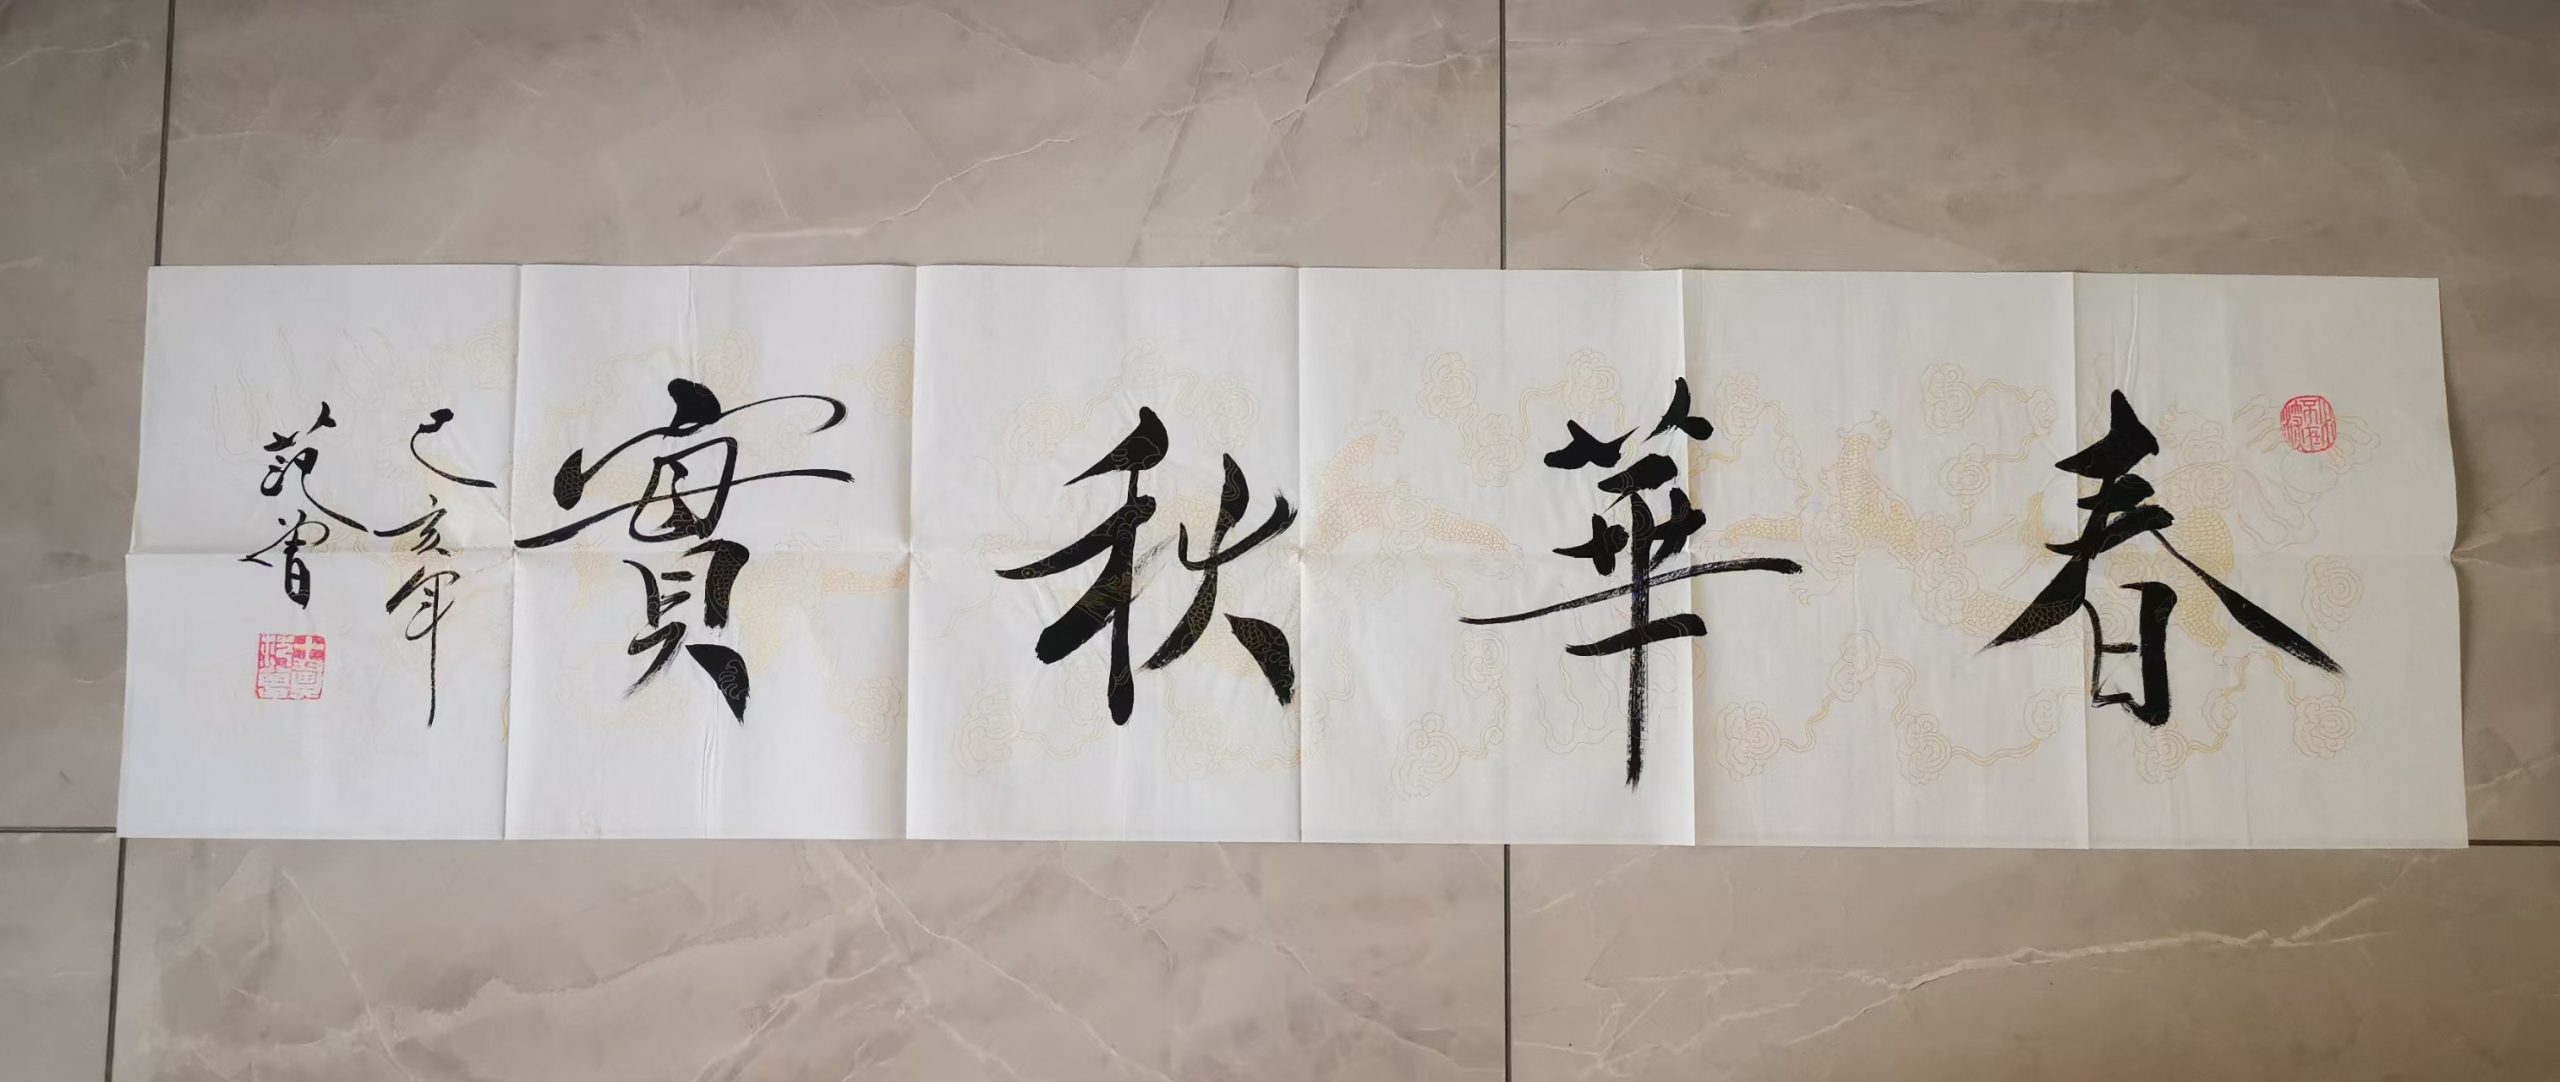 春華秋實
己亥年
范曾